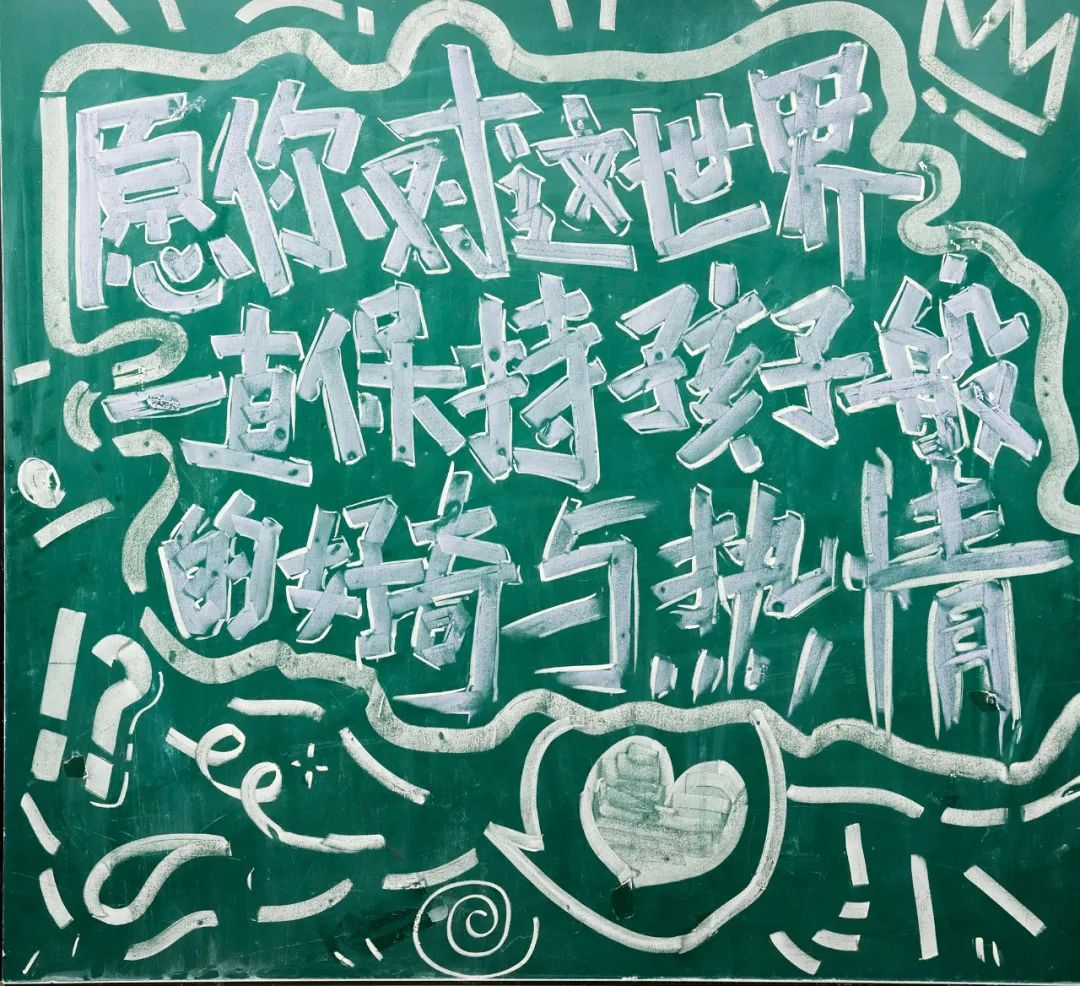 愿你对这世界
一直保持孩子般
的好奇与热情
!?